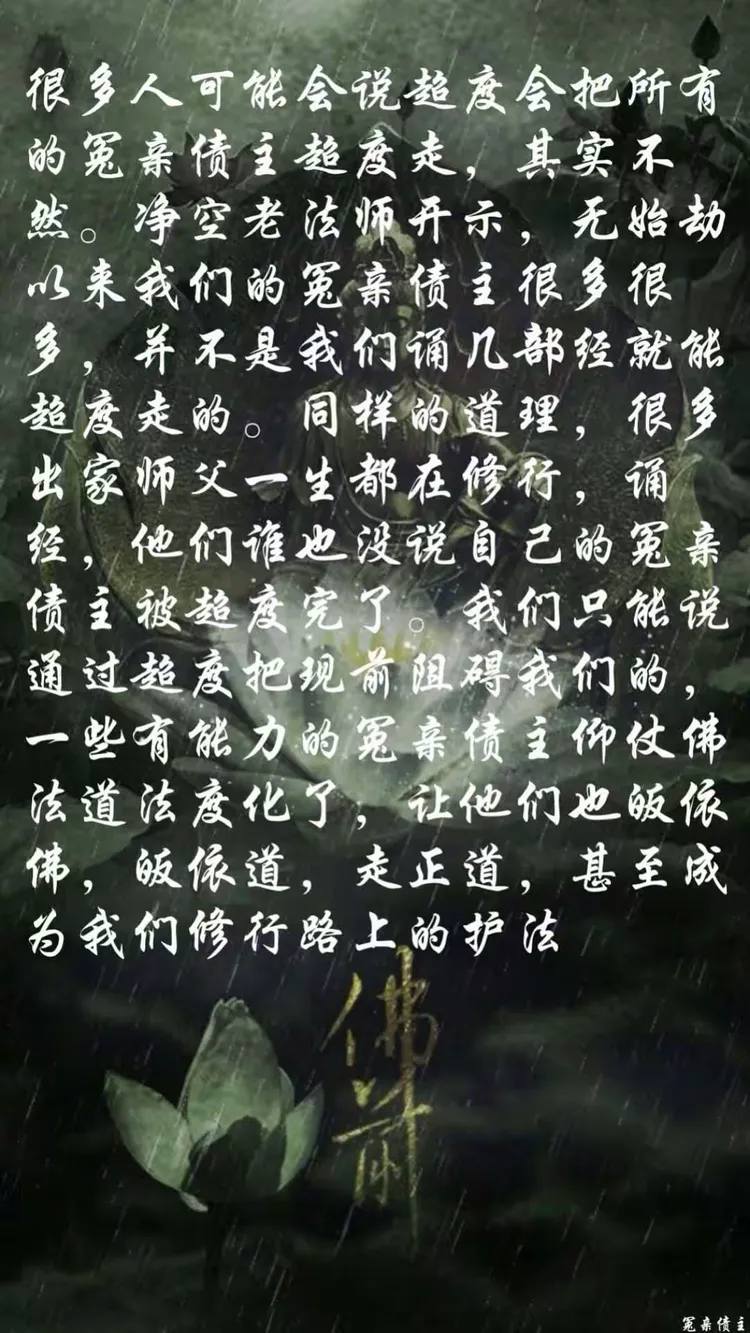 很多人可能会说超度会把所有
的冤亲债主超度走，其实不
然。净空老法师开示，无始劫
以来我们的冤亲债主很多很
多，并不是我们诵几部经就能
超度走的。同样的道理，很多
出家师父一生都在修行，诵
经，他们谁也没说自己的冤亲
债主被超度完了。我们只能说
通过超度把现前阻碍我们的，
一些有能力的冤亲债主仰仗佛
法道法度化了，让他们也皈依
佛，皈依道，走正道，甚至成
为我们修行路上的护法
佛前
冤亲债主